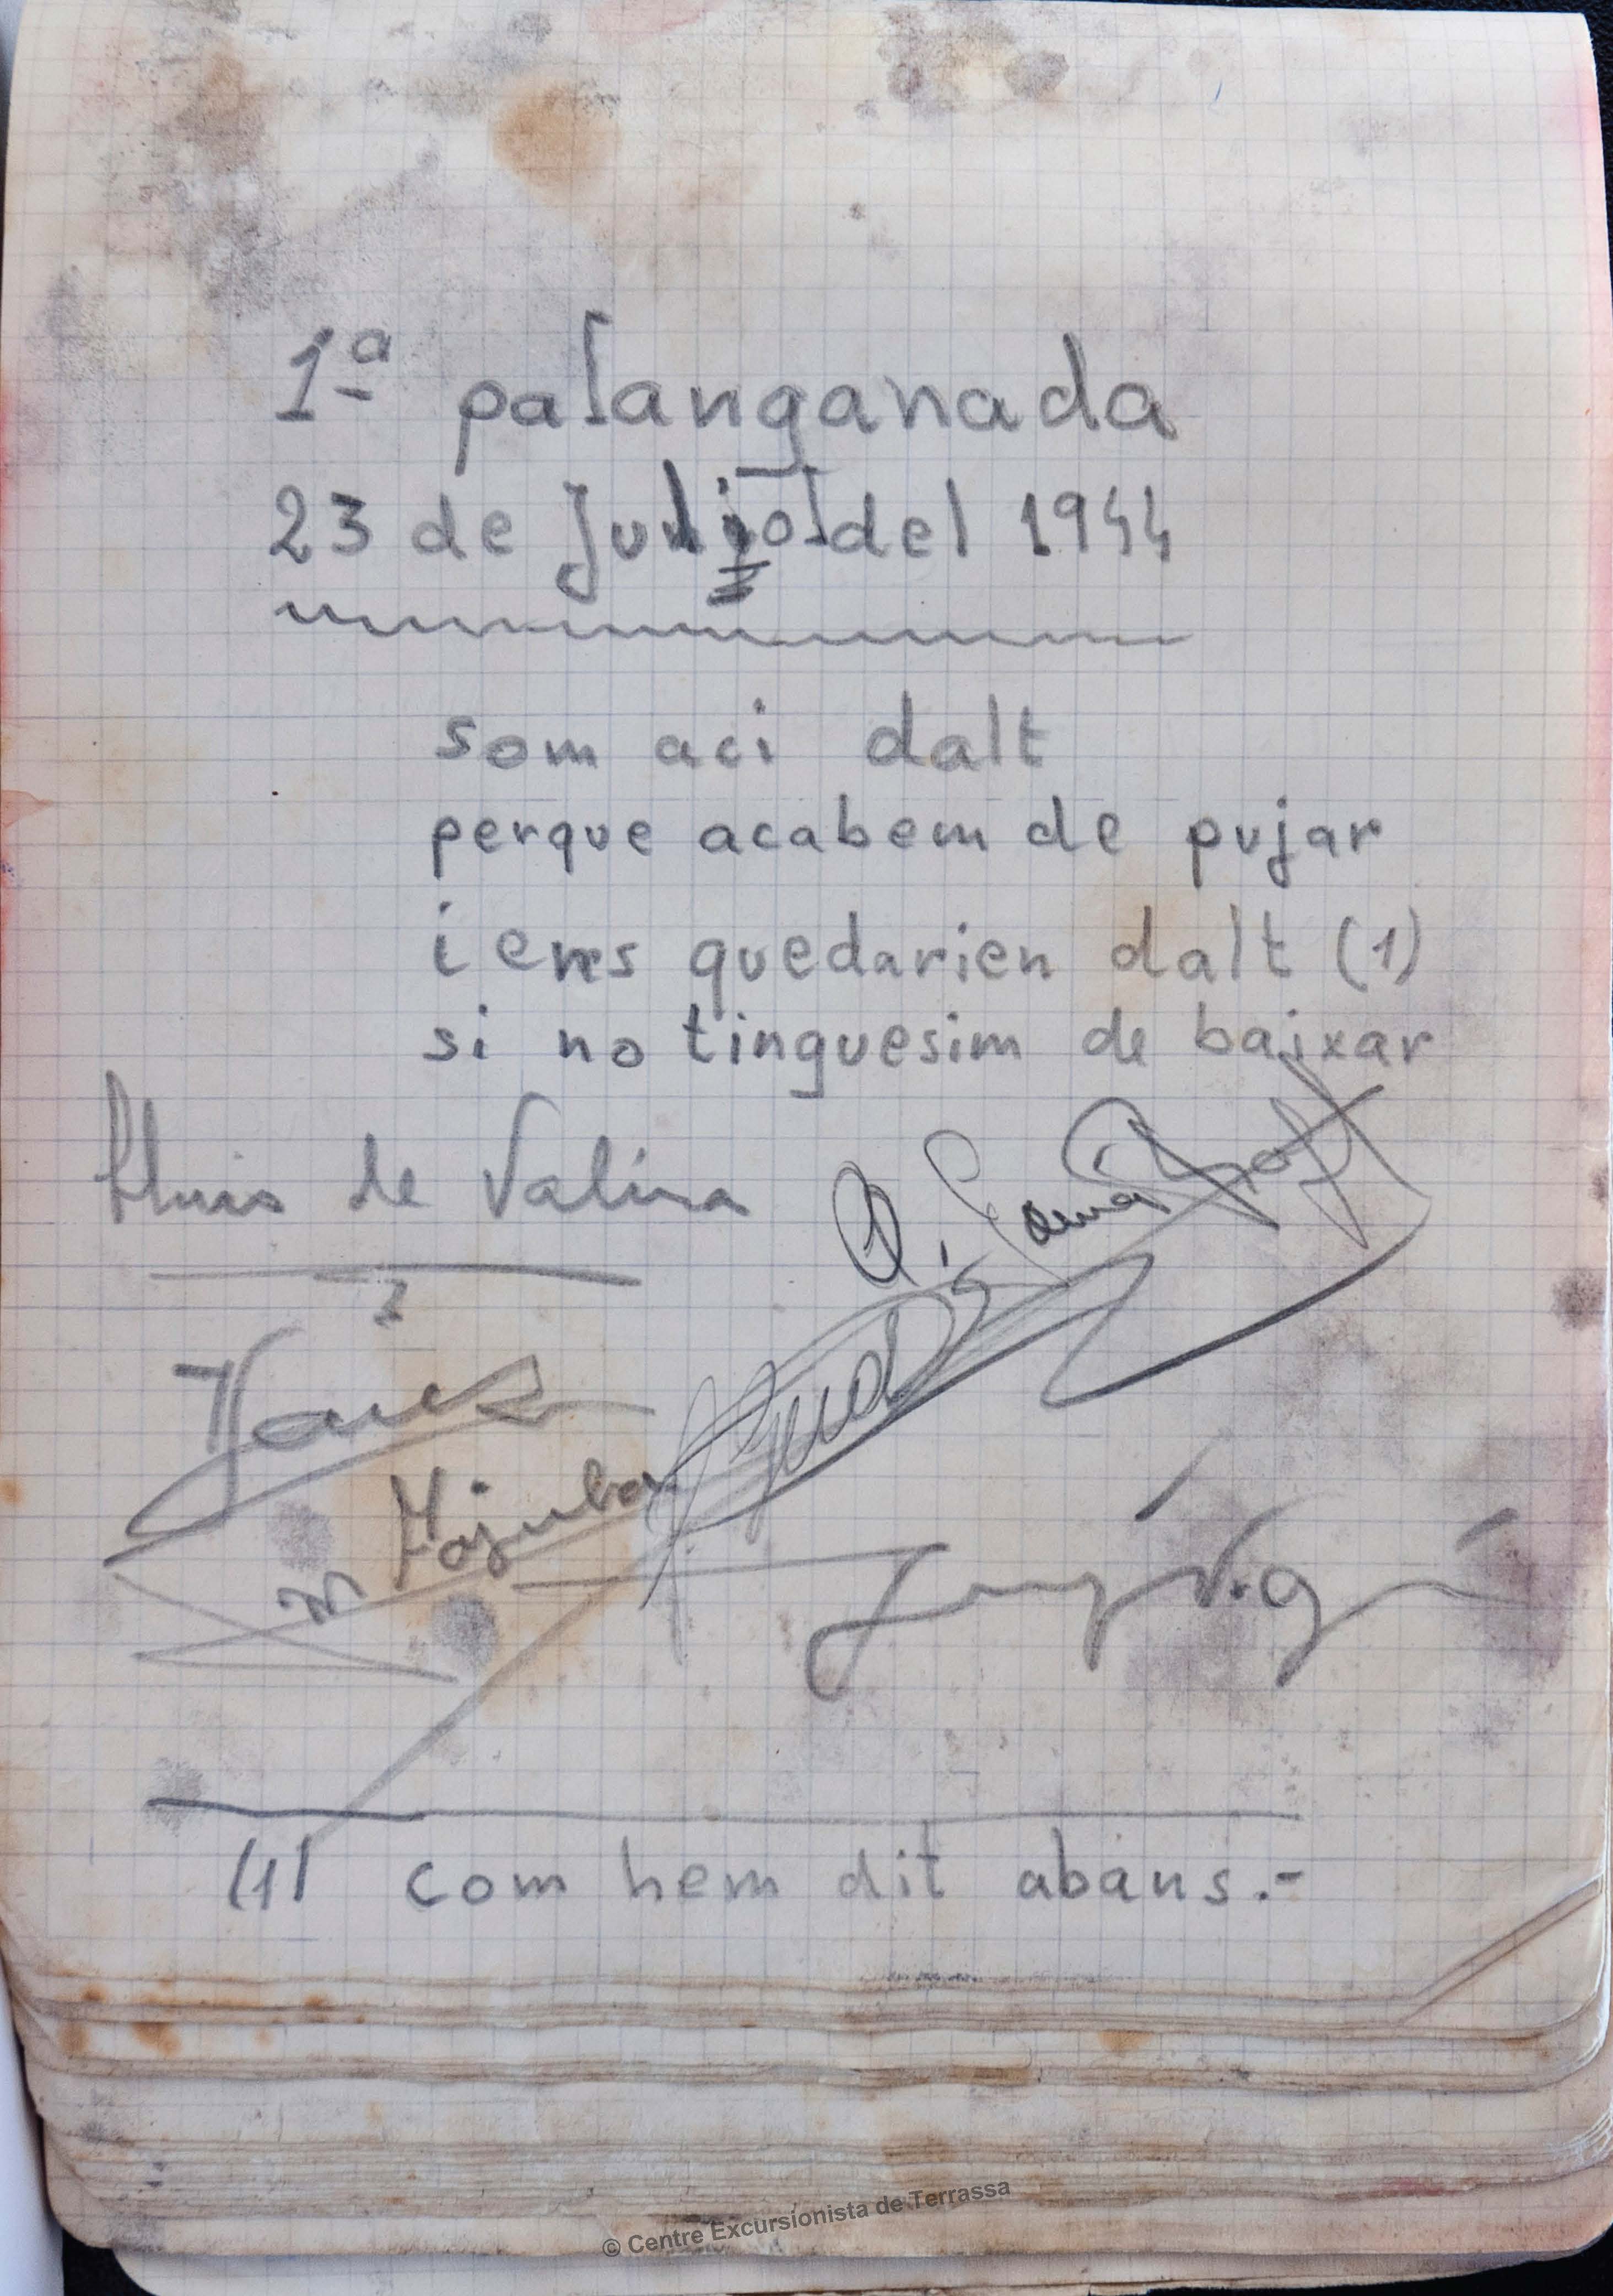 1ª palanganada
23 de Juliol del 1944
som aci dalt
perque acabem de pujar
i ens quedarien dalt (1)
si no tinguesim de baixar
Lluis de Valira
M Majuba
(1) com hem dit abans.-
© Centre Excursionista de Terrassa